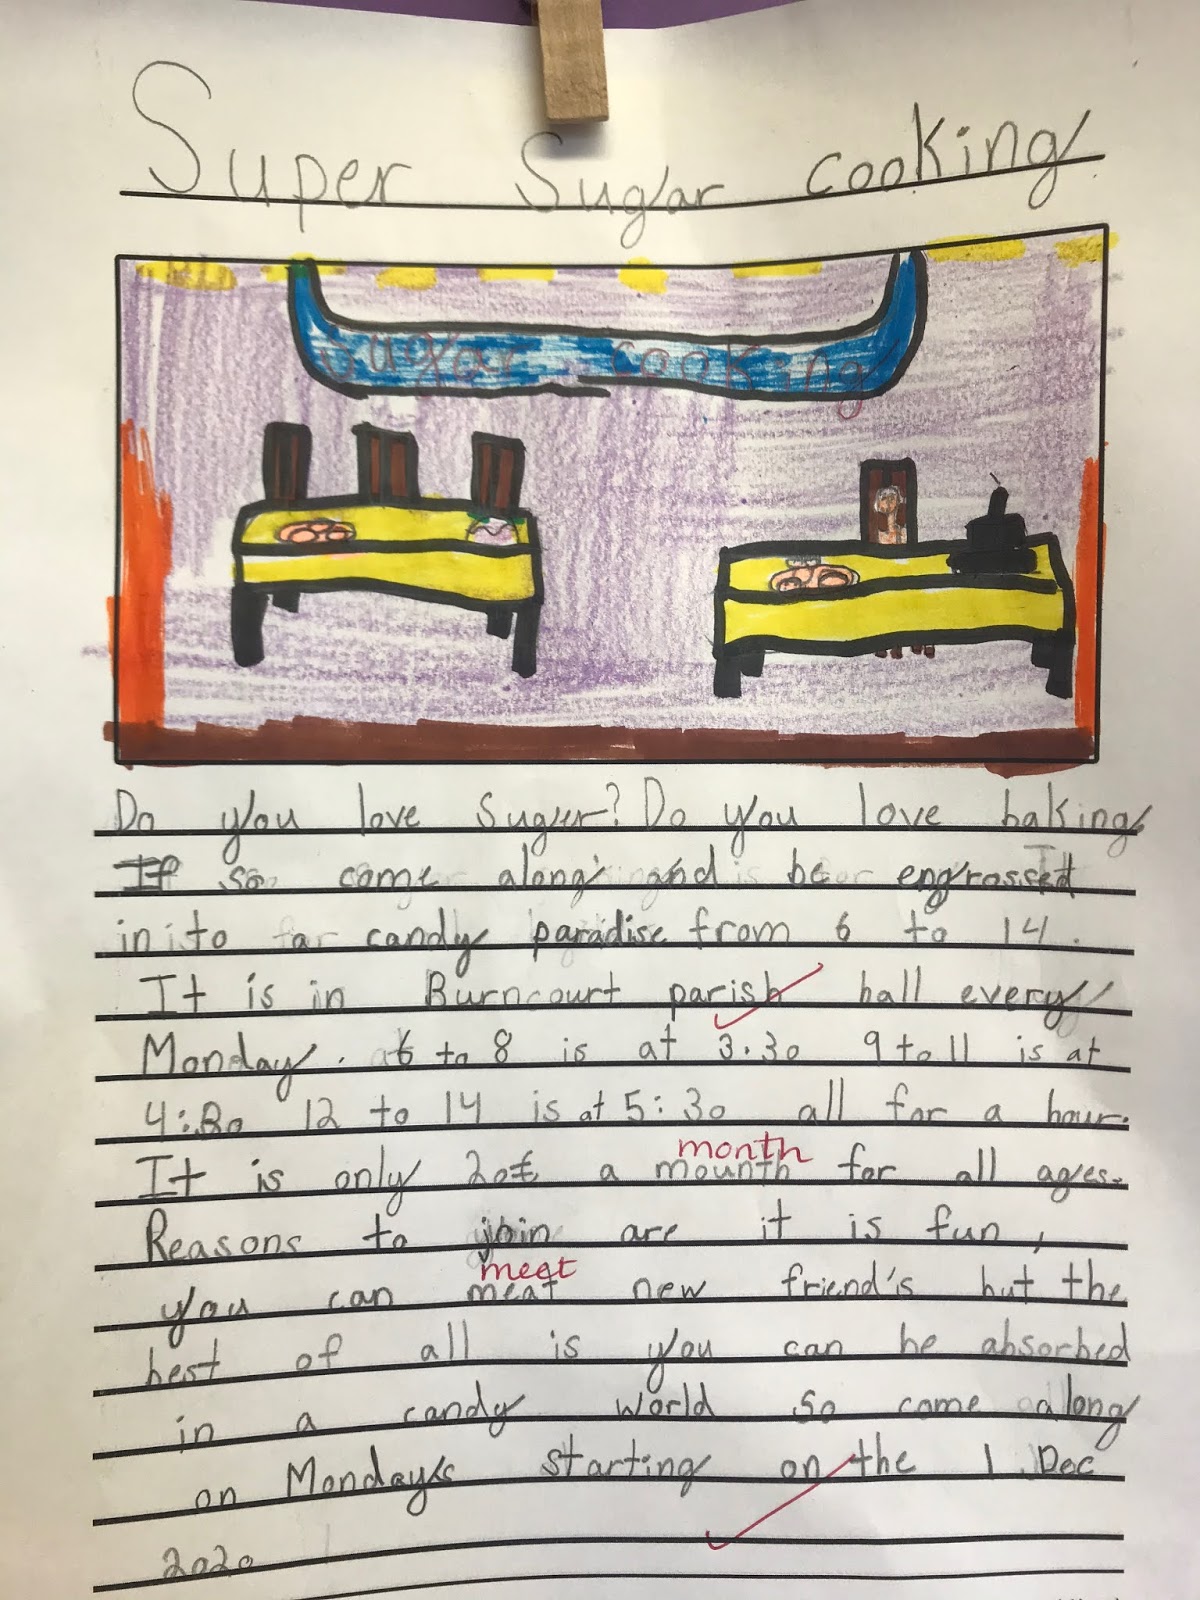 Super Sugar cooking
Sugar cooking
Do you love Sugur? Do you love baking.
If so come along and be engrossed
in to candy paradise from 6 to 14.
It is in Burncourt parish hall every
Monday. 6 to 8 is at 3.30 9 to 11 is at
4:30 12 to 14 is at 5:30 all for a hour.
month
It is only 20€ a mounth for all ages.
Reasons to join are it is fun,
meet
you can meat new friend's but the
best of all is you can be absorbed
in a candy world so come along
on Monday's starting on the 1 Dec
2020